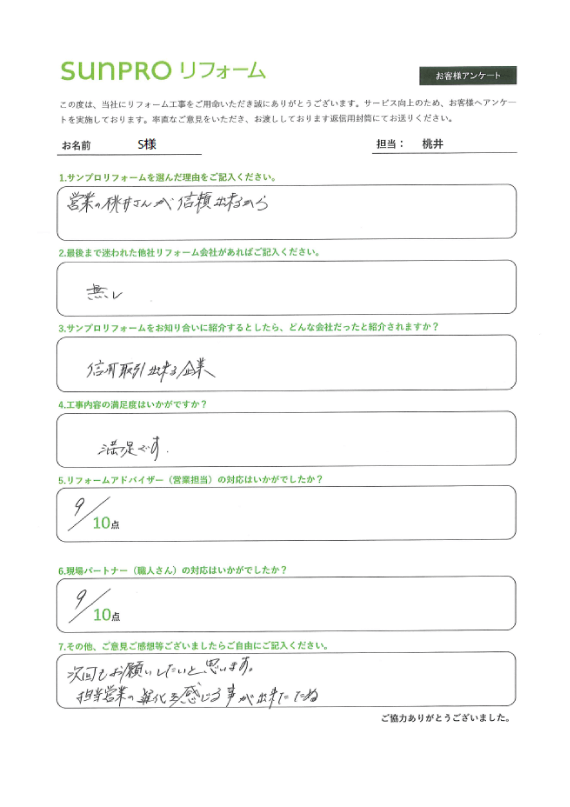 SUNPRO リフォーム
お客様アンケート
この度は、当社にリフォーム工事をご用命いただき誠にありがとうございます。サービス向上のため、お客様へアンケー
トを実施しております。率直なご意見をいただき、お渡ししております返信用封筒にてお送りください。
お名前 S様 担当： 桃井
1.サンプロリフォームを選んだ理由をご記入ください。
営業の桃井さんが信頼出来るから
2.最後まで迷われた他社リフォーム会社があればご記入ください。
無し
3.サンプロリフォームをお知り合いに紹介するとしたら、どんな会社だったと紹介されますか？
信用取引出来る企業
4.工事内容の満足度はいかがですか？
満足です.
5.リフォームアドバイザー（営業担当）の対応はいかがでしたか？
9/10点
6.現場パートナー（職人さん）の対応はいかがでしたか？
9/10点
7.その他、ご意見ご感想等ございましたらご自由にご記入ください。
次回もお願いしたいと思います。
担当営業の進化を感じる事が出来たため
ご協力ありがとうございました。